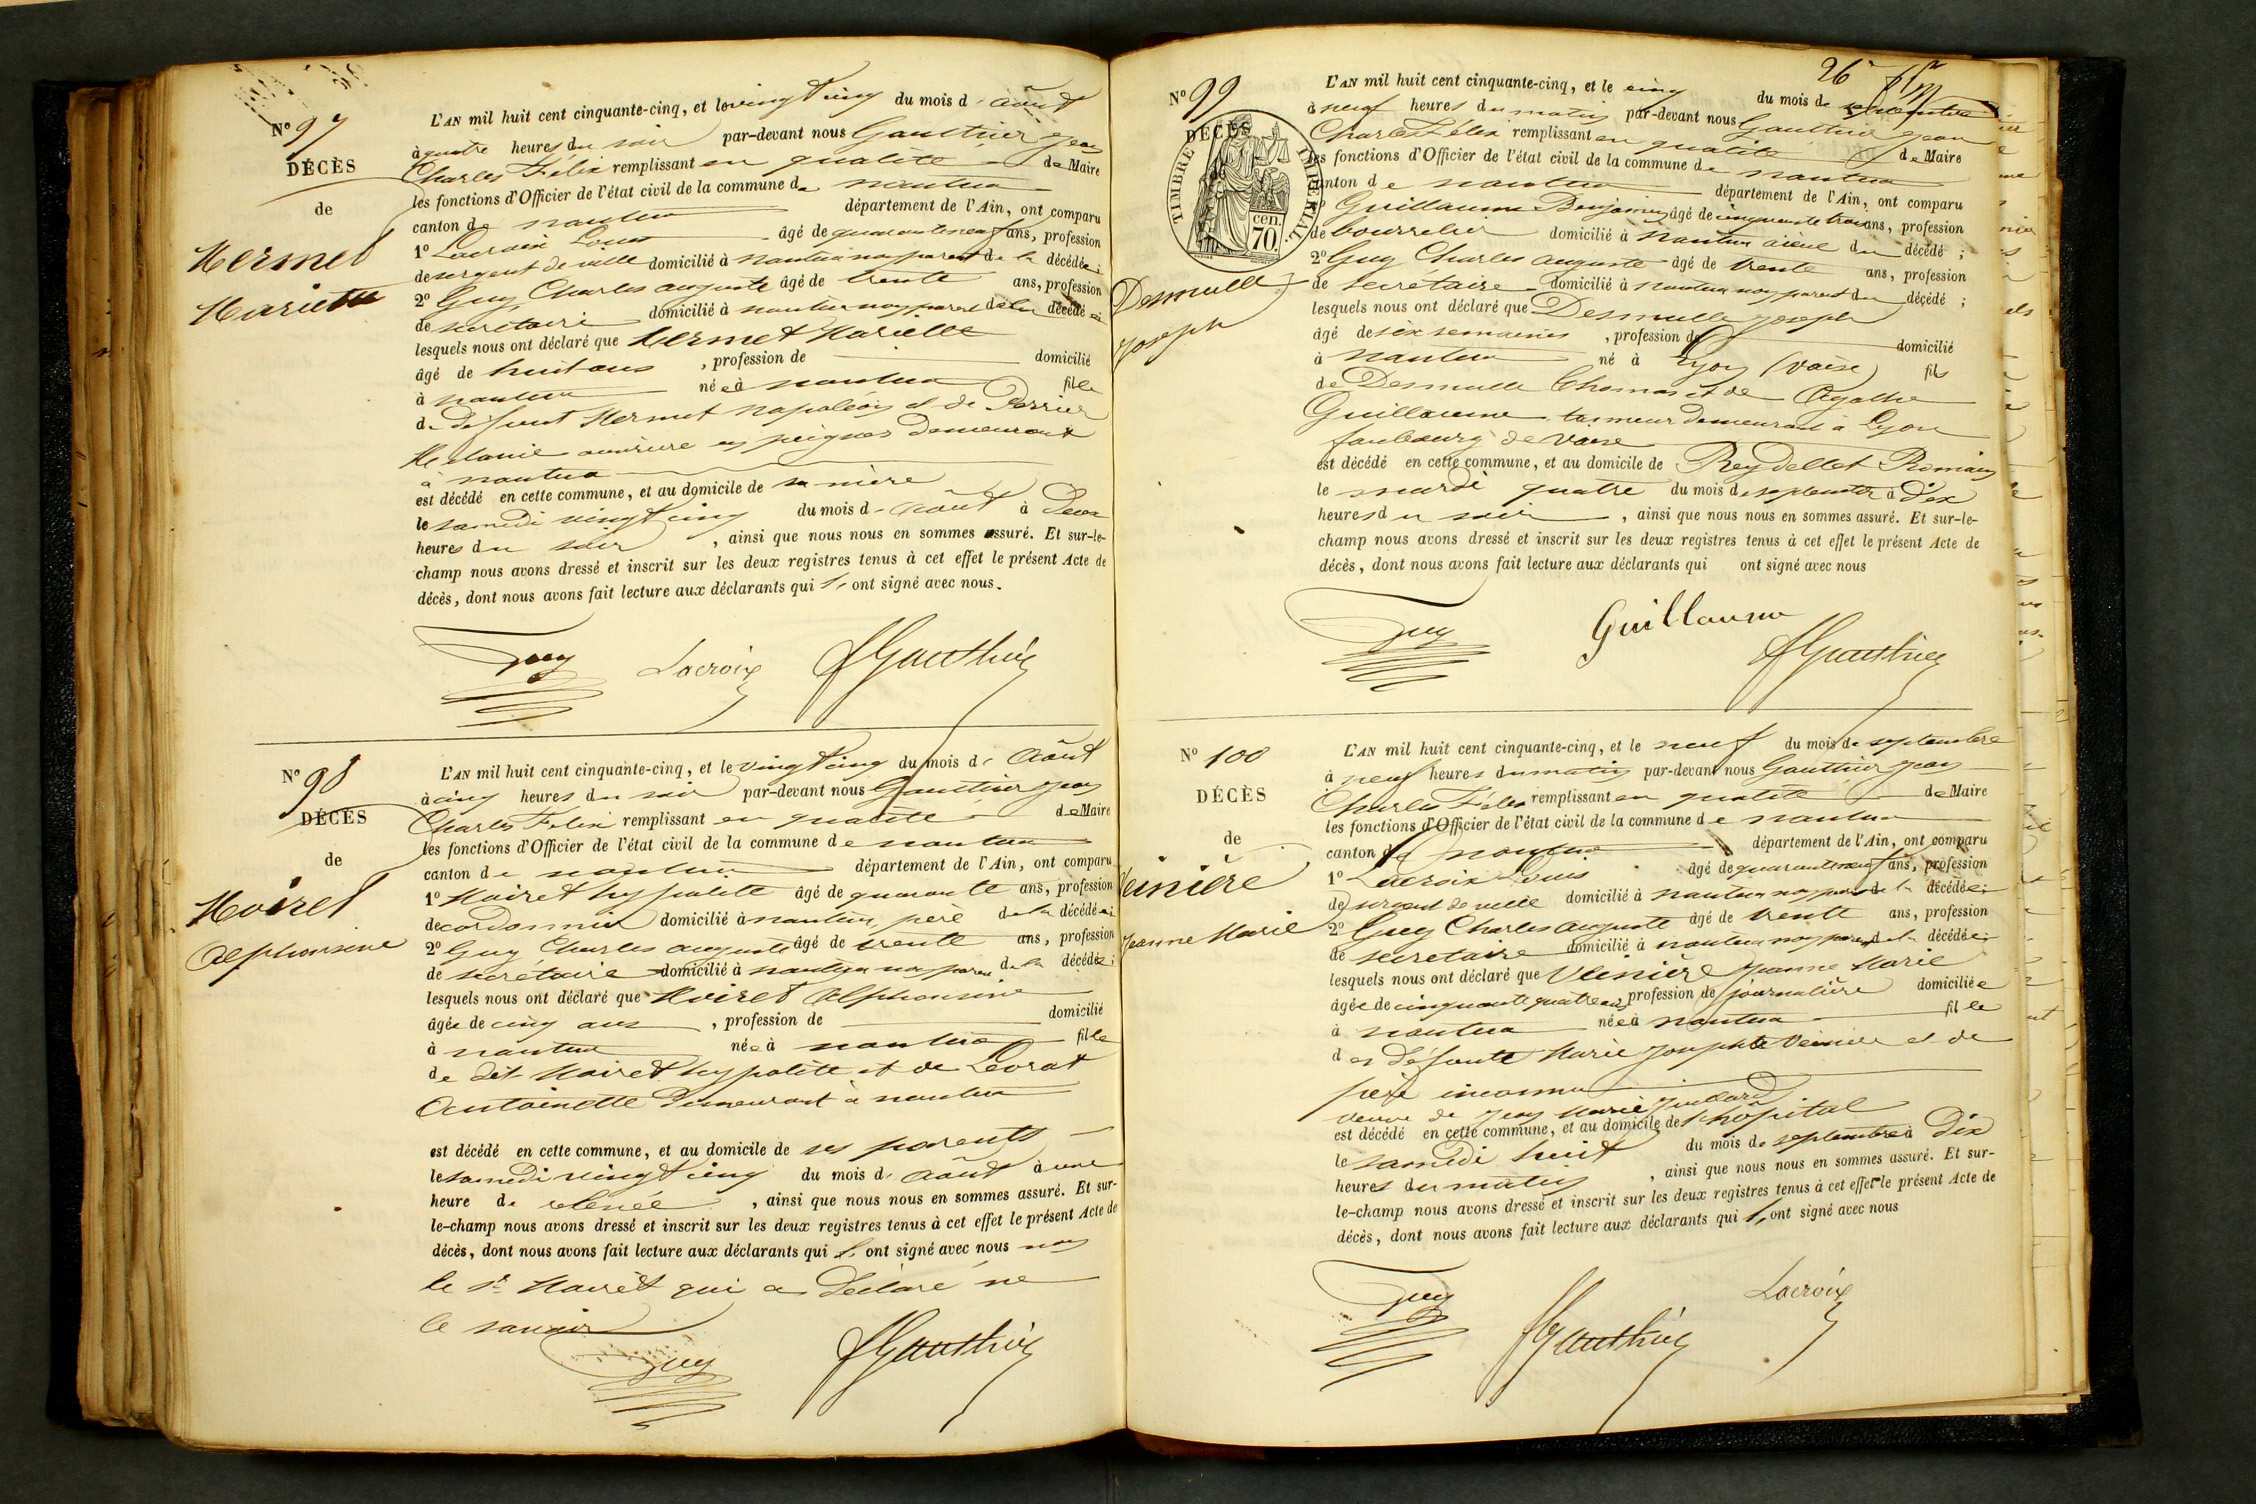 N° 97
DÉCÈS
de
Mermet
Mariette
L'AN mil huit cent cinquante-cinq, et le vingt cinq du mois d' Août
à quatre heures du soir par-devant nous Gauthier Jean
Charles Félix remplissant en qualité de Maire
les fonctions d'Officier de l'état civil de la commune de nantua
canton de nantua département de l'Ain, ont comparu
1° Lacroix Louis âgé de quarante neuf ans, profession
de sergent de ville domicilié à nantua non parent de la décédée;
2° Guy Charles auguste âgé de trente ans, profession
de secretaire domicilié à nantua non parent de la décédée
lesquels nous ont déclaré que Mermet Mariette
âgé de huit ans , profession de domicilié
à nantua née à nantua fille
de défunt Mermet Napoléon et de Perrier
Melanie ouvrière en peignes demeurant
à nantua
est décédé en cette commune, et au domicile de sa mère
le samedi vingt cinq du mois d' Août à Deux
heures du soir , ainsi que nous nous en sommes assuré. Et sur-le-
champ nous avons dressé et inscrit sur les deux registres tenus à cet effet le présent Acte de
décès, dont nous avons fait lecture aux déclarants qui l' ont signé avec nous.
Guy Lacroix fGauthier
N° 98
DÉCÈS
de
Moiret
Alphonsine
L'AN mil huit cent cinquante-cinq, et le vingt cinq du mois d' Août
à cinq heures du soir par-devant nous Gauthier Jean
Charles Félix remplissant en qualité de Maire
les fonctions d'Officier de l'état civil de la commune de nantua
canton de nantua département de l'Ain, ont comparu
1° Moiret hypolite âgé de quarante ans, profession
de cordonnier domicilié à nantua, père de la décédée;
2° Guy Charles auguste âgé de trente ans, profession
de secrétaire domicilié à nantua non parent de la décédée;
lesquels nous ont déclaré que Moiret Alphonsine
âgée de cinq ans , profession de domicilié
à nantua née à nantua fille
de dit Moiret hypolite et de Levrat
Antoinette demeurant à nantua
est décédé en cette commune, et au domicile de ses parents
le samedi vingt cinq du mois d' Août à une
heure de relevée , ainsi que nous nous en sommes assuré. Et sur-
le-champ nous avons dressé et inscrit sur les deux registres tenus à cet effet le présent Acte de
décès, dont nous avons fait lecture aux déclarants qui l' ont signé avec nous non
le sr Moiret qui a déclaré ne
le savoir
Guy fGauthier
26
N° 99
DÉCÈS
TIMBRE IMPÉRIAL
cen.
70.
Desmulle
Joseph
L'AN mil huit cent cinquante-cinq, et le cinq du mois de septembre
à neuf heures du matin par-devant nous Gauthier Jean
Charles Félix remplissant en qualité de Maire
les fonctions d'Officier de l'état civil de la commune de nantua
canton de nantua département de l'Ain, ont comparu
Guillaume Benjamin âgé de cinquante trois ans, profession
de bourrelier domicilié à Nantua aieul du décédé ;
2° Guy Charles auguste âgé de trente ans, profession
de secrétaire domicilié à nantua non parent du décédé ;
lesquels nous ont déclaré que Desmulle Joseph
âgé de six semaines , profession de domicilié
à nantua né à Lyon (vaise) fils
de Desmulle Thomas et de Agathe
Guillaume tanneur demeurant à Lyon
faubourg de vaise
est décédé en cette commune, et au domicile de Reydellet Romain
le mardi quatre du mois de septembre à dix
heures du soir , ainsi que nous nous en sommes assuré. Et sur-le-
champ nous avons dressé et inscrit sur les deux registres tenus à cet effet le présent Acte de
décès, dont nous avons fait lecture aux déclarants qui ont signé avec nous
Guy Guillaume fGauthier
N° 100
DÉCÈS
de
Veinière
Jeanne Marie
L'AN mil huit cent cinquante-cinq, et le neuf du mois de septembre
à neuf heures du matin par-devant nous Gauthier Jean
Charles Félix remplissant en qualité de Maire
les fonctions d'Officier de l'état civil de la commune de nantua
canton de nantua département de l'Ain, ont comparu
1° Lacroix Louis âgé de quarante neuf ans, profession
de sergent de ville domicilié à nantua non parent de la décédée;
2° Guy Charles auguste âgé de trente ans, profession
de secretaire domicilié à nantua non parent de la décédée
lesquels nous ont déclaré que Veinière Jeanne Marie
âgée de cinquante quatre ans profession de journalière domiciliée
à nantua née à nantua fille
des defunte Marie Josephte Veinière et de
père inconnu
veuve de Jean Marie Juillard
est décédé en cette commune, et au domicile de l'hôpital
le samedi huit du mois de septembre à dix
heures du matin , ainsi que nous nous en sommes assuré. Et sur-
le-champ nous avons dressé et inscrit sur les deux registres tenus à cet effet le présent Acte de
décès, dont nous avons fait lecture aux déclarants qui l' ont signé avec nous
Guy fGauthier Lacroix